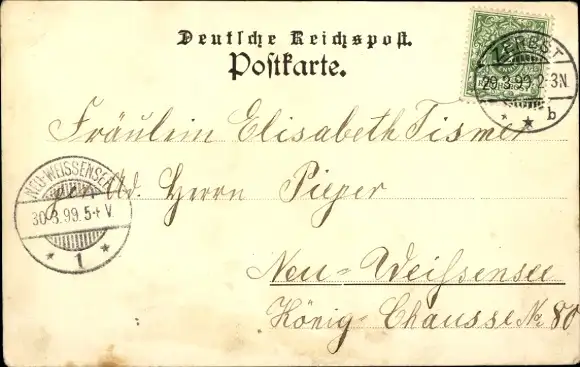 Deutsche Reichspost.
Postkarte.
ZERBST
29.3.99.2-3N.
* * b
Fräulein Elisabeth Tismer
Ad. Herrn Pieper
NEU-WEISSENSEE
30.3.99.5-6 V.
* 1 *
Neu-Weißensee
König-Chausse No. 80